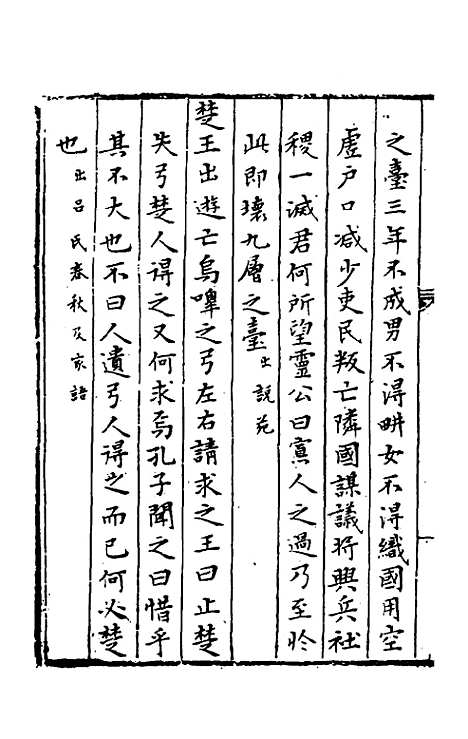 之臺三年不成男不得畊女不得織國用空
虛戶口减少吏民叛亡隣國謀議将興兵社
稷一滅君何所望靈公曰寡人之過乃至於
此即壞九層之臺出說苑
楚王出遊亡烏嘷之弓左右請求之王曰止楚
失弓楚人得之又何求焉孔子聞之曰惜乎
其不大也不曰人遺弓人得之而已何必楚
也出吕氏春秋及家語